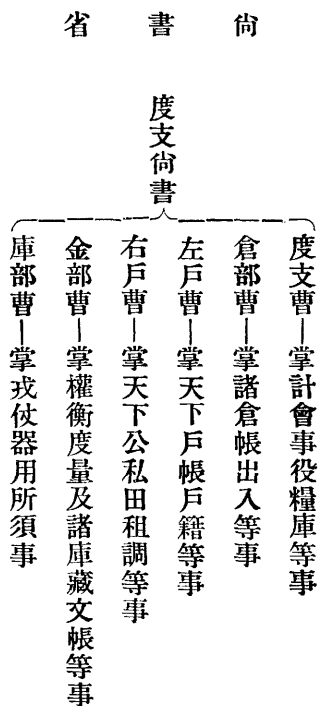 尙書省
度支尙書
度支曹—掌計會事役糧庫等事
倉部曹—掌諸倉帳出入等事
左戶曹—掌天下戶帳戶籍等事
右戶曹—掌天下公私田租調等事
金部曹—掌權衡度量及諸庫藏文帳等事
庫部曹—掌戎仗器用所須事